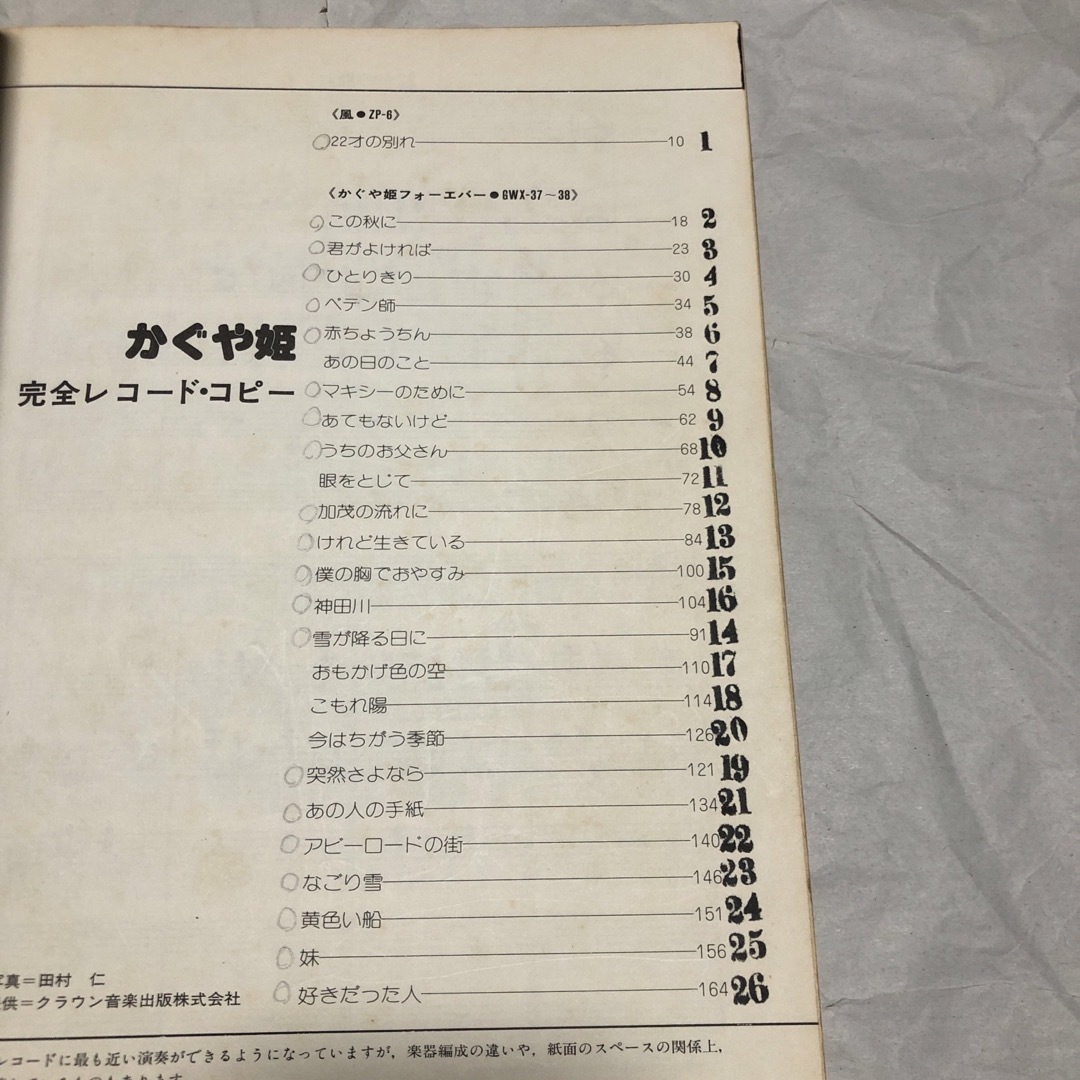 《風●ZP-6》
22才の別れ 10 1
《かぐや姫フォーエバー●GWX-37～38》
この秋に 18 2
君がよければ 23 3
ひとりきり 30 4
ペテン師 34 5
赤ちょうちん 38 6
あの日のこと 44 7
マキシーのために 54 8
あてもないけど 62 9
うちのお父さん 68 10
眼をとじて 72 11
加茂の流れに 78 12
けれど生きている 84 13
僕の胸でおやすみ 100 15
神田川 104 16
雪が降る日に 91 14
おもかげ色の空 110 17
こもれ陽 114 18
今はちがう季節 126 20
突然さよなら 121 19
あの人の手紙 134 21
アビーロードの街 140 22
なごり雪 146 23
黄色い船 151 24
妹 156 25
好きだった人 164 26
かぐや姫
完全レコード・コピー
写真=田村 仁
提供=クラウン音楽出版株式会社
レコードに最も近い演奏ができるようになっていますが，楽器編成の違いや，紙面のスペースの関係上，